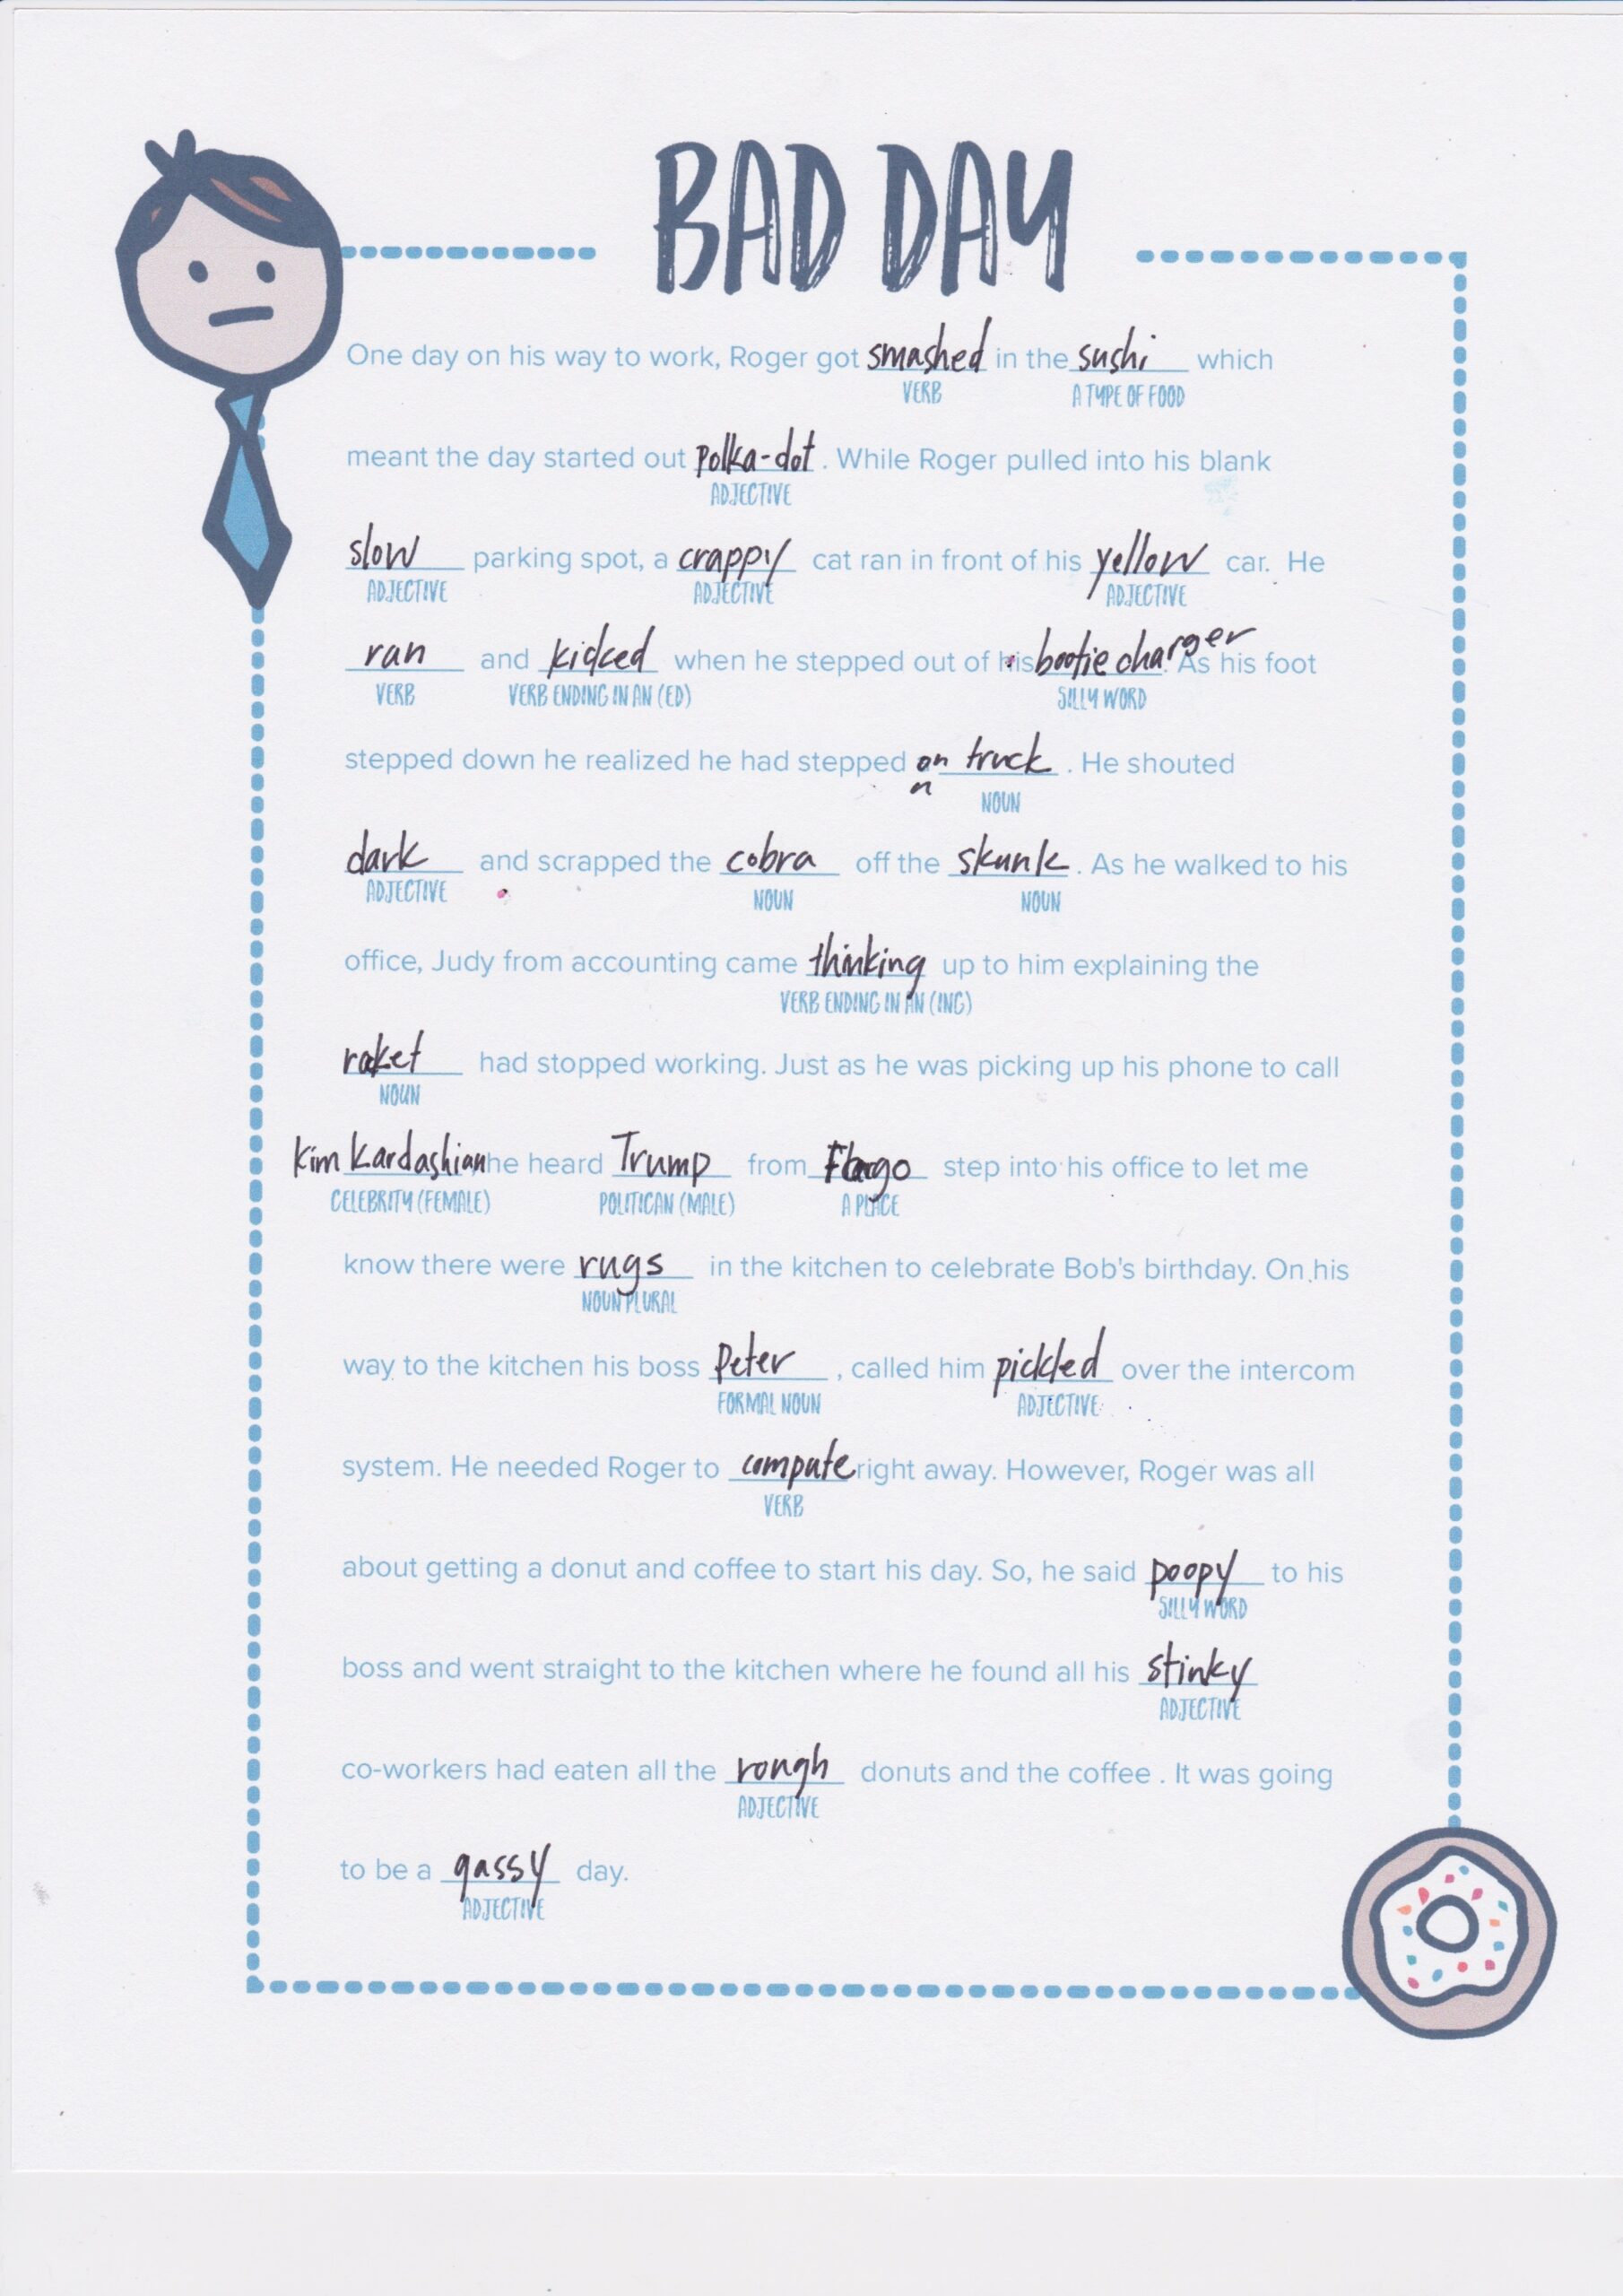 BAD DAY
One day on his way to work, Roger got smashed in the sushi which
VERB A TYPE OF FOOD
meant the day started out polka-dot. While Roger pulled into his blank
ADJECTIVE
slow parking spot, a crappy cat ran in front of his yellow car. He
ADJECTIVE ADJECTIVE ADJECTIVE
ran and kicked when he stepped out of his bootie charger. As his foot
VERB VERB ENDING IN AN (ED) SILLY WORD
stepped down he realized he had stepped on truck. He shouted
NOUN
dark and scrapped the cobra off the skunk. As he walked to his
ADJECTIVE NOUN NOUN
office, Judy from accounting came thinking up to him explaining the
VERB ENDING IN AN (ING)
raket had stopped working. Just as he was picking up his phone to call
NOUN
Kim Kardashian, he heard Trump from step into his office to let me
CELEBRITY (FEMALE) POLITICAN (MALE) A PLACE
know there were rugs in the kitchen to celebrate Bob's birthday. On his
NOUN PLURAL
way to the kitchen his boss Peter, called him pickled over the intercom
FORMAL NOUN ADJECTIVE
system. He needed Roger to compute right away. However, Roger was all
VERB
about getting a donut and coffee to start his day. So, he said poopy to his
SILLY WORD
boss and went straight to the kitchen where he found all his stinky
ADJECTIVE
co-workers had eaten all the rough donuts and the coffee . It was going
ADJECTIVE
to be a gassy day.
ADJECTIVE